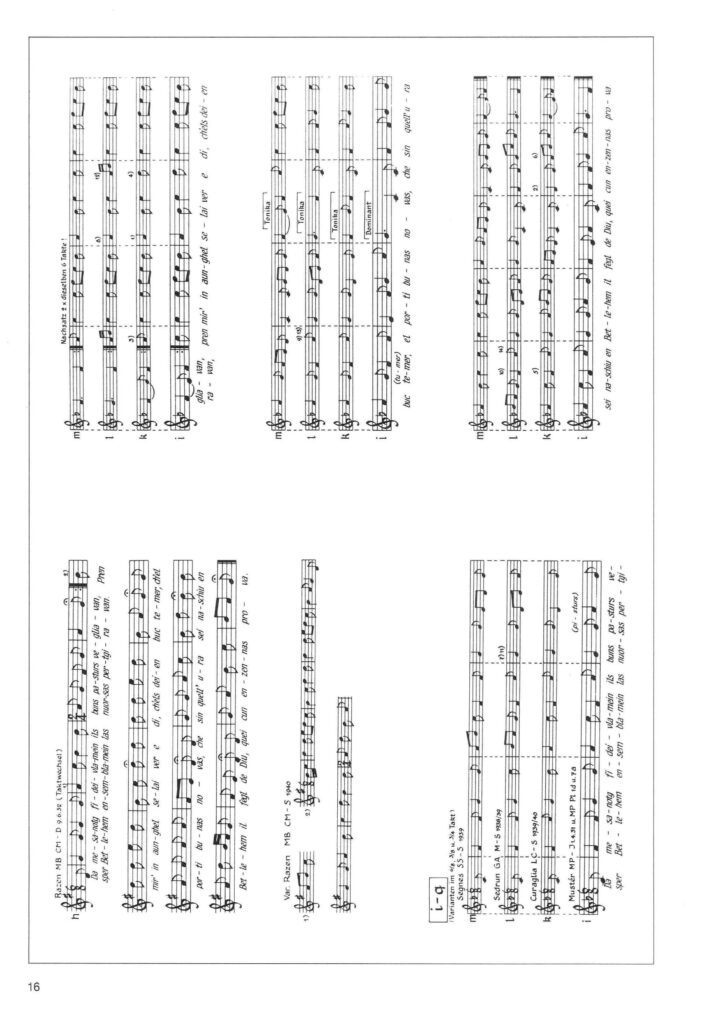 Razen MB CM-D 9.6.32 (Taktwechsel)
h
2)
Da me-sa-notg fi-dei-vla-mein ils buns pa-sturs ve-glia-van, Pren
sper Bet-le-hem en-sem-bla-mein las nuor-sas per-tgi-ra-van.
mir' in aun-ghel se-lai ver e di, ch'els dei-en buc te-mer, ch'el
por-ti bu-nas no-vas, che sin quell' u-ra sei na-schiu en
Bet-le-hem il fegl de Diu, quei cun en-zen-nas pro-va.
Var. Razen MB CM-S 1940
1) 2)
i-q
(Varianten im 4/4, 3/8 u. 3/4 Takt)
Segnes SS-S 1939
m
Sedrun GA M-S 1938/39
l
Curaglia LC-S 1939/40
k
Mustér MP-J 1.4.31 u. MP Pl 1d u. 7a
i
(pi-sturs)
Da me-sa-notg fi-dei-vla-mein ils buns pa-sturs ve-
sper Bet-le-hem en-sem-bla-mein las nuor-sas per-tgi-
Nachsatz 2 x dieselben 6 Takte!
m
l
k
i
glia-van, pren mir' in aun-ghel se-lai ver e di, ch'els dei-en
ra-van,
Tonika
m
Tonika
l
Tonika
k
Dominant
i
(tu-mer)
buc te-mer, el por-ti bu-nas no-vas, che sin quell' u-ra
m
l
k
i
sei na-schiu en Bet-le-hem il fegl de Diu, quei cun en-zen-nas pro-va
16